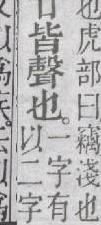 也虎部曰竊淺也
廿皆聲也。
一字有
以二字